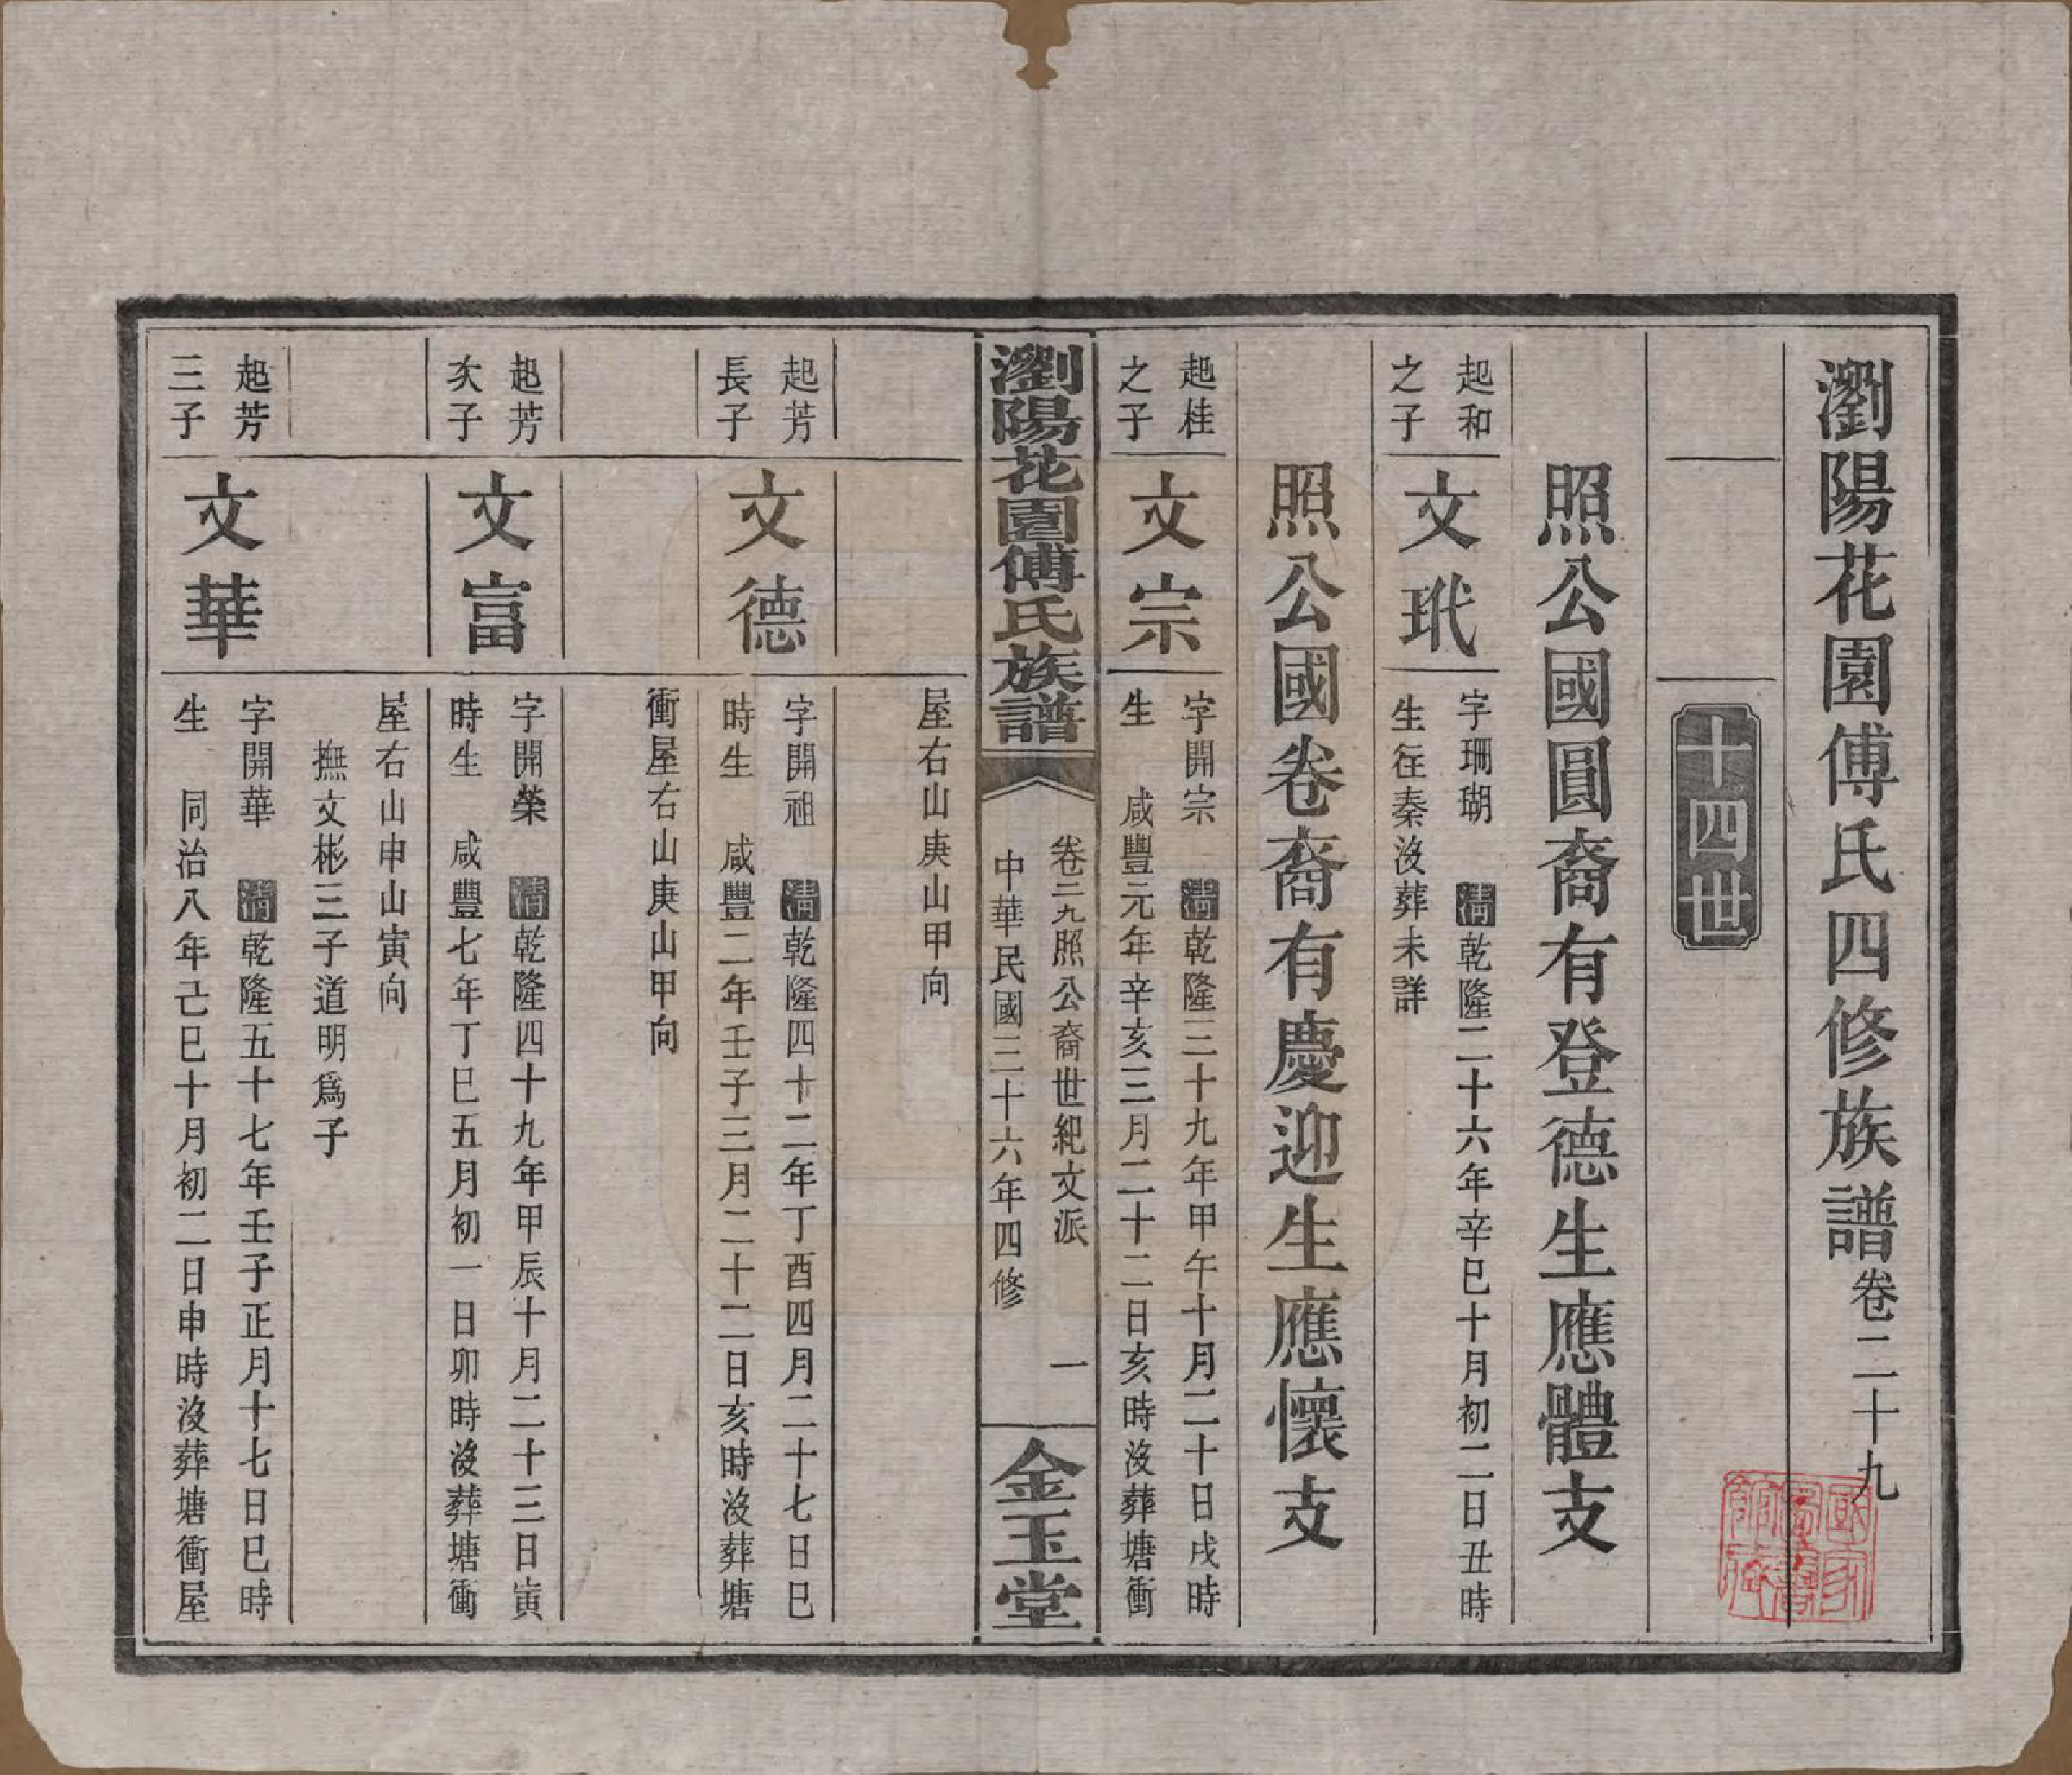 瀏陽花園傅氏四修族譜卷二十九
十四世
照公國圓裔有登德生應體支
起和
之子
文玳
字珊瑚　清乾隆二十六年辛巳十月初二日丑時
生徃秦沒葬未詳
照公國卷裔有慶迎生應懷支
起桂
之子
文宗
字開宗　清乾隆三十九年甲午十月二十日戌時
生　咸豐元年辛亥三月二十二日亥時沒葬塘衝
瀏陽花園傅氏族譜
卷二九照公裔世紀文派　一
中華民國三十六年四修
金玉堂
屋右山庚山甲向
起芳
長子
文德
字開祖　清乾隆四十二年丁酉四月二十七日巳
時生　咸豐二年壬子三月二十二日亥時沒葬塘
衝屋右山庚山甲向
起芳
次子
文富
字開榮　清乾隆四十九年甲辰十月二十三日寅
時生　咸豐七年丁巳五月初一日卯時沒葬塘衝
屋右山申山寅向
撫文彬三子道明爲子
起芳
三子
文華
字開華　清乾隆五十七年壬子正月十七日巳時
生　同治八年己巳十月初二日申時沒葬塘衝屋